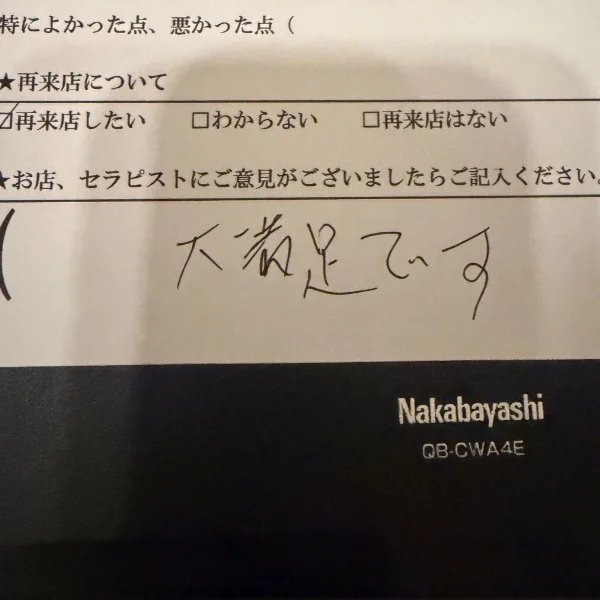 特によかった点、悪かった点（
★再来店について
☑再来店したい □わからない □再来店はない
★お店、セラピストにご意見がございましたらご記入ください。
( 大満足です
Nakabayashi
QB-CWA4E